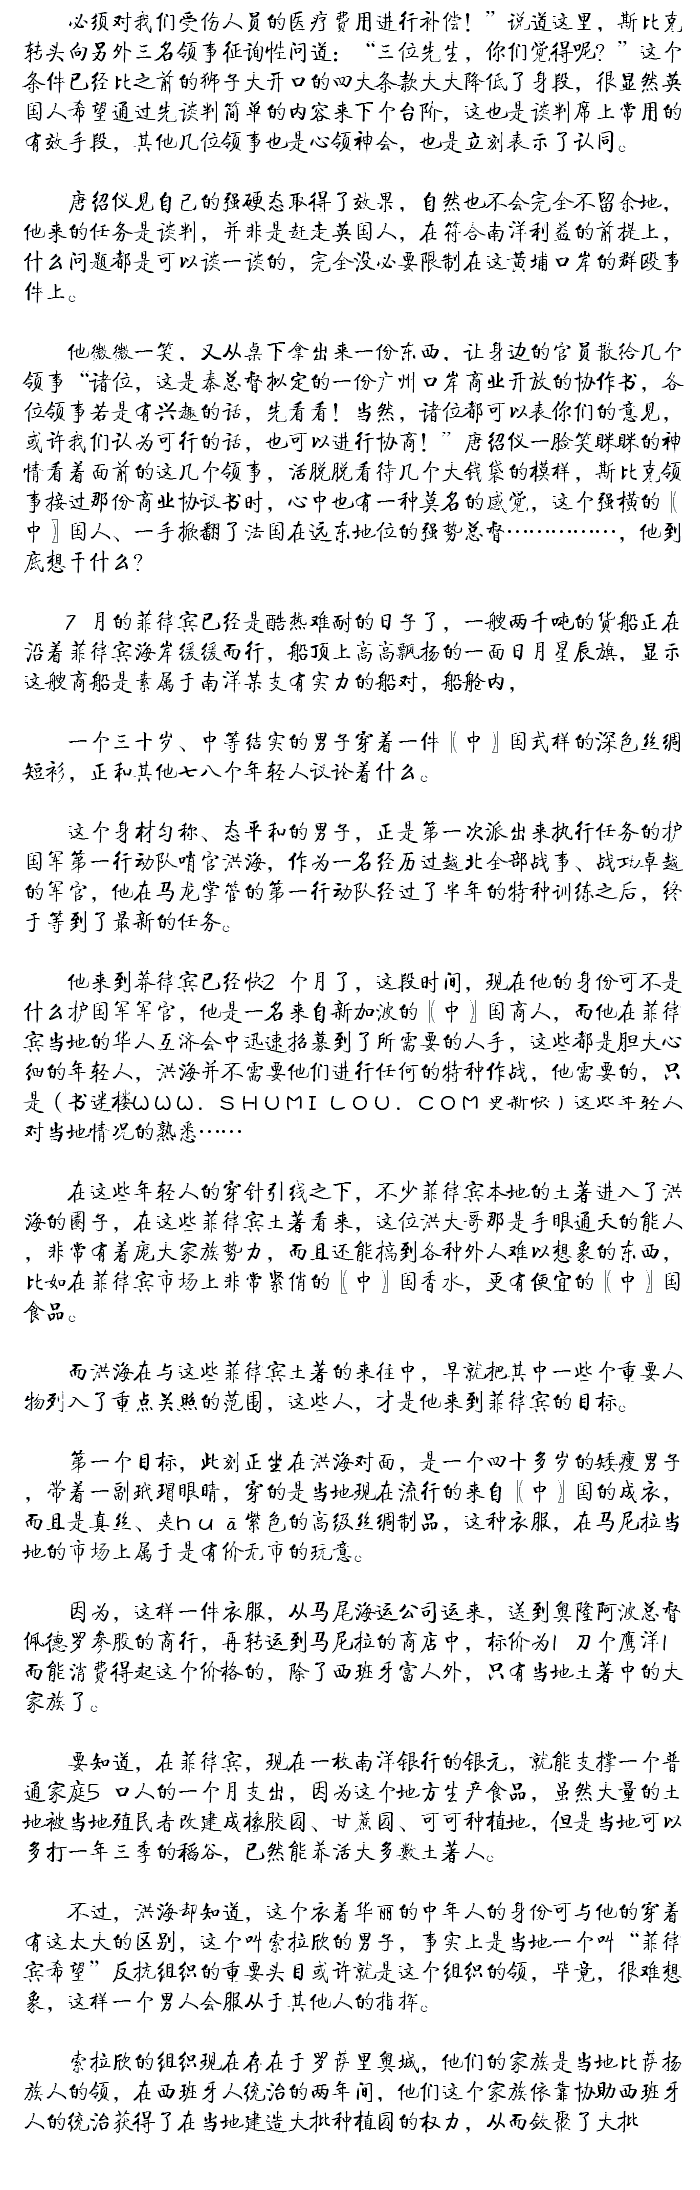 必须对我们受伤人员的医疗费用进行补偿！”说道这里，斯比克
转头向另外三名领事征询性问道：“三位先生，你们觉得呢？”这个
条件已经比之前的狮子大开口的四大条款大大降低了身段，很显然英
国人希望通过先谈判简单的内容来下个台阶，这也是谈判席上常用的
有效手段，其他几位领事也是心领神会，也是立刻表示了认同。
唐绍仪见自己的强硬态取得了效果，自然也不会完全不留余地，
他来的任务是谈判，并非是赶走英国人，在符合南洋利益的前提上，
什么问题都是可以谈一谈的，完全没必要限制在这黄埔口岸的群殴事
件上。
他微微一笑，又从桌下拿出来一份东西，让身边的官员散给几个
领事“诸位，这是秦总督拟定的一份广州口岸商业开放的协作书，各
位领事若是有兴趣的话，先看看！当然，诸位都可以表你们的意见，
或许我们认为可行的话，也可以进行协商！”唐绍仪一脸笑眯眯的神
情看着面前的这几个领事，活脱脱看待几个大钱袋的模样，斯比克领
事接过那份商业协议书时，心中也有一种莫名的感觉，这个强横的〖
中〗国人、一手掀翻了法国在远东地位的强势总督……………，他到
底想干什么？
7 月的菲律宾已经是酷热难耐的日子了，一艘两千吨的货船正在
沿着菲律宾海岸缓缓而行，船顶上高高飘扬的一面日月星辰旗，显示
这艘商船是素属于南洋某支有实力的船对，船舱内，
一个三十岁、中等结实的男子穿着一件〖中〗国式样的深色丝绸
短衫，正和其他七八个年轻人议论着什么。
这个身材匀称、态平和的男子，正是第一次派出来执行任务的护
国军第一行动队哨官洪海，作为一名经历过越北全部战事、战功卓越
的军官，他在马龙掌管的第一行动队经过了半年的特种训练之后，终
于等到了最新的任务。
他来到莽律宾已经快2 个月了，这段时间，现在他的身份可不是
什么护国军军官，他是一名来自新加波的〖中〗国商人，而他在菲律
宾当地的华人互济会中迅速招募到了所需要的人手，这些都是胆大心
细的年轻人，洪海并不需要他们进行任何的特种作战，他需要的，只
是（书迷楼ＷＷＷ．ＳＨＵＭＩＬＯＵ．ＣＯＭ更新快）这些年轻人
对当地情况的熟悉……
在这些年轻人的穿针引线之下，不少菲律宾本地的土著进入了洪
海的圈子，在这些菲律宾土著看来，这位洪大哥那是手眼通天的能人
，非常有着庞大家族势力，而且还能搞到各种外人难以想象的东西，
比如在菲律宾市场上非常紧俏的〖中〗国香水，更有便宜的〖中〗国
食品。
而洪海在与这些菲律宾土著的来往中，早就把其中一些个重要人
物列入了重点关照的范围，这些人，才是他来到菲律宾的目标。
第一个目标，此刻正坐在洪海对面，是一个四十多岁的矮瘦男子
，带着一副玳瑁眼睛，穿的是当地现在流行的来自〖中〗国的成衣，
而且是真丝、夹ｈｕā紫色的高级丝绸制品，这种衣服，在马尼拉当
地的市场上属于是有价无市的玩意。
因为，这样一件衣服，从马尾海运公司运来，送到奥隆阿波总督
佩德罗参股的商行，再转运到马尼拉的商店中，标价为l 刀个鹰洋l
而能消费得起这个价格的，除了西班牙富人外，只有当地土著中的大
家族了。
要知道，在菲律宾，现在一枚南洋银行的银元，就能支撑一个普
通家庭5 口人的一个月支出，因为这个地方生产食品，虽然大量的土
地被当地殖民者改建成橡胶园、甘蔗园、可可种植地，但是当地可以
多打一年三季的稻谷，已然能养活大多数土著人。
不过，洪海却知道，这个衣着华丽的中年人的身份可与他的穿着
有这太大的区别，这个叫索拉欣的男子，事实上是当地一个叫“菲律
宾希望”反抗组织的重要头目或许就是这个组织的领，毕竟，很难想
象，这样一个男人会服从于其他人的指挥。
索拉欣的组织现在存在于罗萨里奥城，他们的家族是当地比萨扬
族人的领，在西班牙人统治的两年间，他们这个家族依靠协助西班牙
人的统治获得了在当地建造大批种植园的权力，从而敛聚了大批